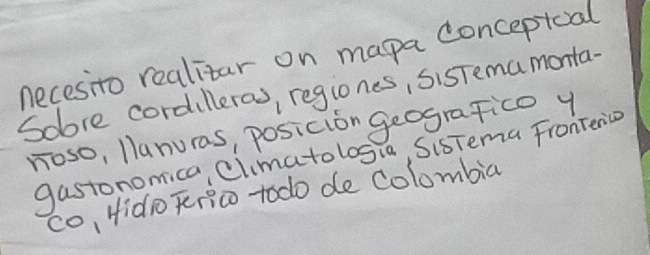 necesito realizar un mapa conceptual
Sobre cordilleras, regiones, sistema monta-
ñoso, llanuras, posición geografico y
gastonomica, climatología, sistema Fronterico
co, Hidroferico todo de Colombia